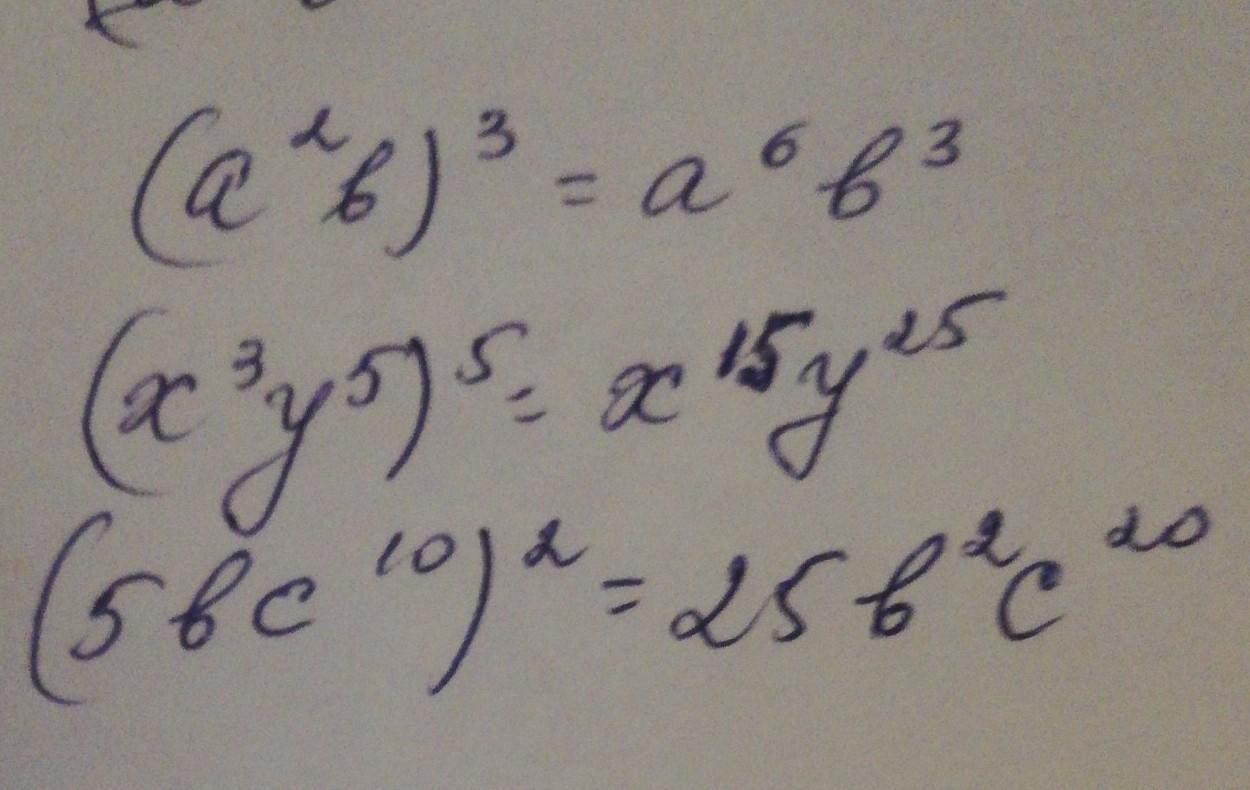 (a²b)³ = a⁶b³
(x³y⁵)⁵ = x¹⁵y²⁵
(5bc¹⁰)² = 25b²c²⁰